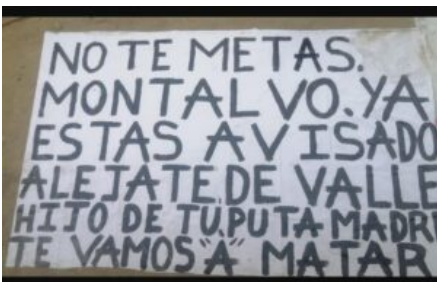 NO TE METAS.
MONTALVO.YA
ESTAS AVISADO
ALEJATE.DE VALLE
HIJO DE TU.PUTA MADRE
TE VAMOS "A" MATAR